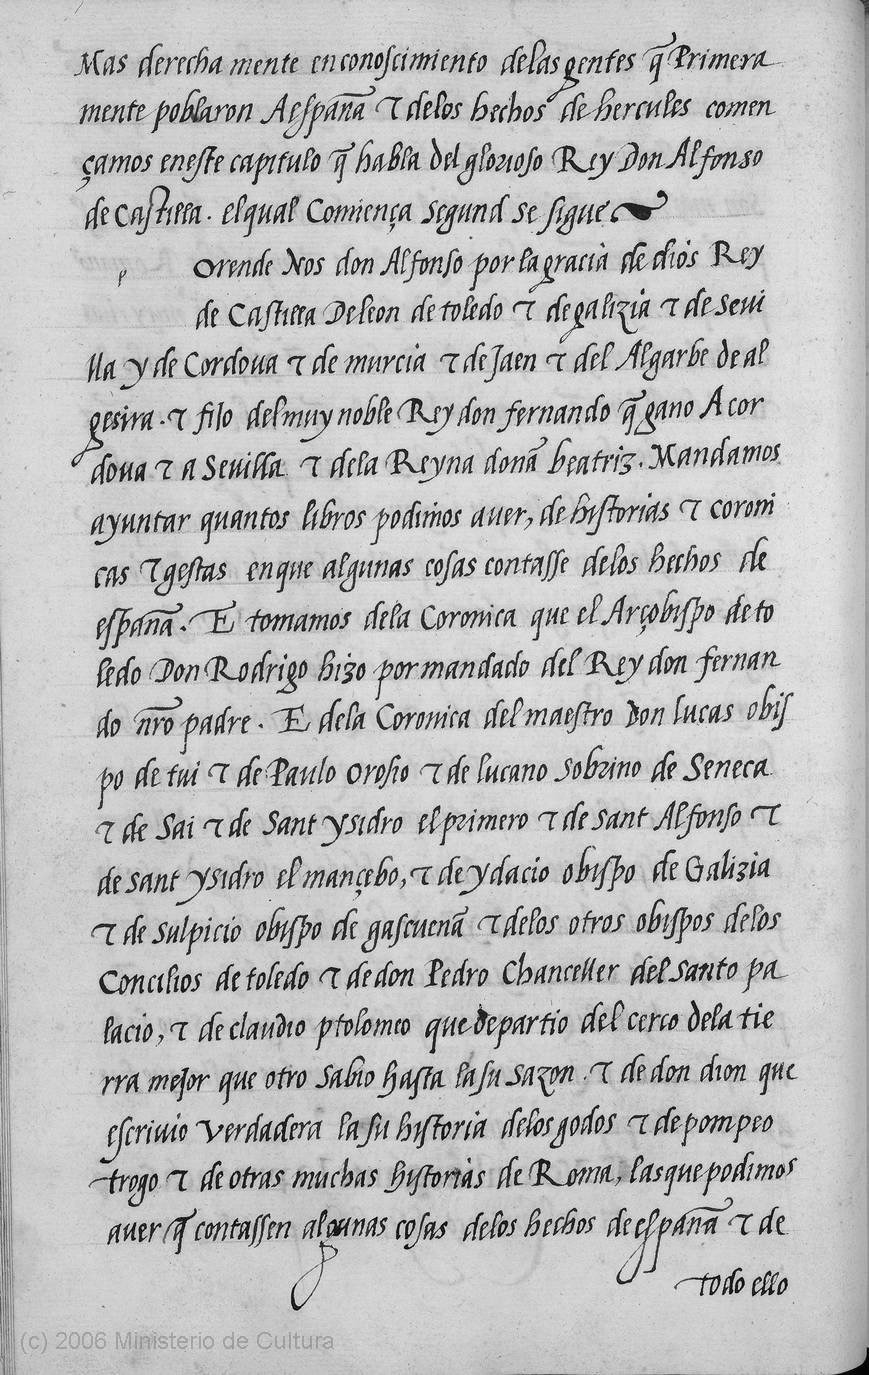 Mas derecha mente enconoscimiento delas gentes q̃ Primera
mente poblaron Aespaña τ delos hechos de hercules comen
çamos eneste capitulo q̃ habla del glorioso Rey Don Alfonso
de Castilla. elqual Comiença segund se sigue
p orende Nos don Alfonso por la gracia de dios Rey
de Castilla Deleon de toledo τ de galizia τ de Sevi
lla y de Cordova τ de murcia τ de Jaen τ del Algarbe de al
gesira. τ fijo del muy noble Rey don fernando q̃ gano A cor
dova τ a Sevilla τ dela Reyna doña beatriz. Mandamos
ayuntar quantos libros podimos aver, de historias τ coroni
cas τ gestas enque algunas cosas contasse delos hechos de
españa. E tomamos dela Coronica que el Arçobispo de to
ledo Don Rodrigo hizo por mandado del Rey don fernan
do nr̃o padre. E dela Coronica del maestro Don lucas obis
po de tui τ de Paulo orosio τ de lucano sobrino de Seneca
τ de Sai τ de Sant ysidro el primero τ de sant Alfonso τ
de sant ysidro el mançebo, τ de ydacio obispo de Galizia
τ de sulpicio obispo de gascueña τ delos otros obispos delos
Concilios de toledo τ de don Pedro Chanceller del santo pa
lacio, τ de claudio ptolomeo que departio del cerco dela tie
rra mejor que otro sabio hasta la su sazon. τ de don dion que
escrivio verdadera la su historia delos godos τ de pompeo
trogo τ de otras muchas historias de Roma, las que podimos
aver q̃ contassen algunas cosas delos hechos de españa τ de
todo ello
(c) 2006 Ministerio de Cultura